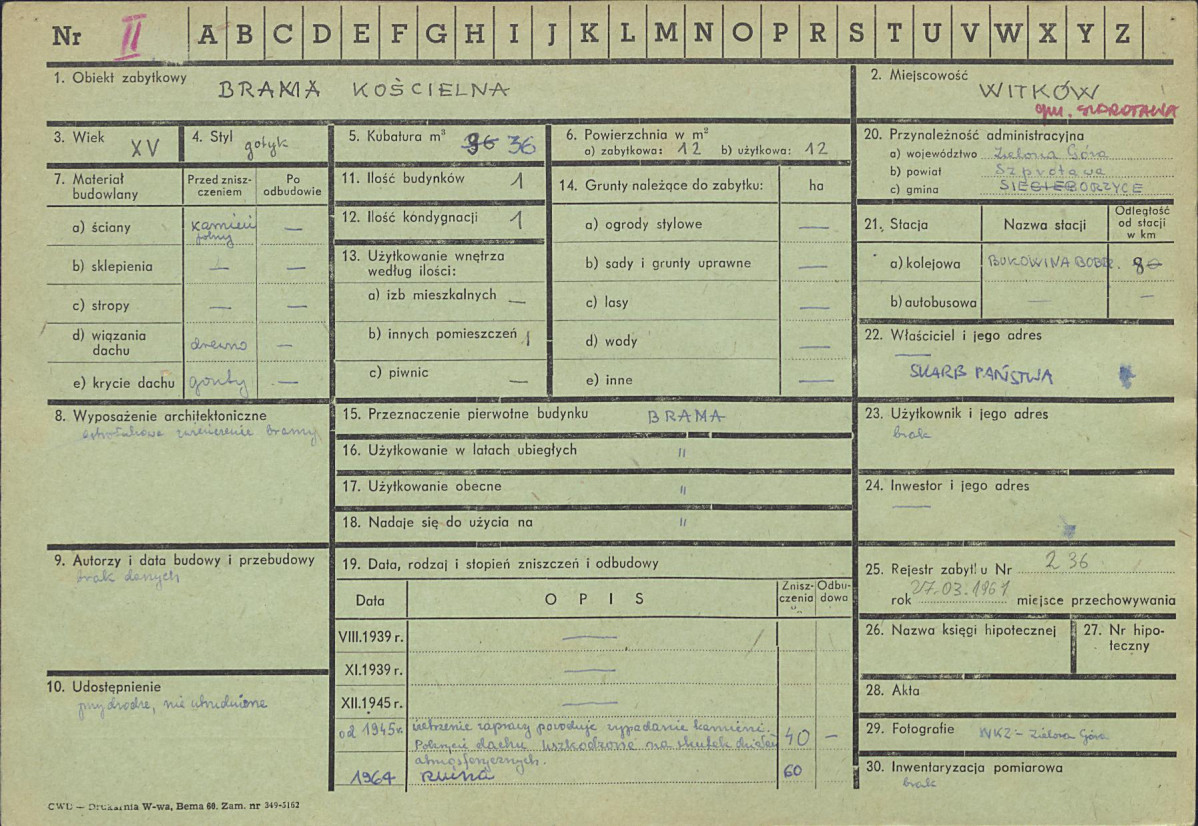 Nr II A B C D E F G H I J K L M N O P R S T U V W X Y Z
1. Obiekt zabytkowy BRAMA KOŚCIELNA
2. Miejscowość WITKÓW
gm. SZPROTAWA
3. Wiek XV
4. Styl gotyk
5. Kubatura m³ 36
6. Powierzchnia w m²
a) zabytkowa: 12 b) użytkowa: 12
7. Materiał budowlany
Przed znisz-czeniem
Po odbudowie
a) ściany kamień polny —
b) sklepienia — —
c) stropy — —
d) wiązania dachu drewno —
e) krycie dachu gonty —
8. Wyposażenie architektoniczne
ostrołukowe zwieńczenie bramy
9. Autorzy i data budowy i przebudowy
brak danych
10. Udostępnienie
przy drodze, nie utrudnione
11. Ilość budynków 1
12. Ilość kondygnacji 1
13. Użytkowanie wnętrza według ilości:
a) izb mieszkalnych —
b) innych pomieszczeń 1
c) piwnic —
14. Grunty należące do zabytku: ha
a) ogrody stylowe —
b) sady i grunty uprawne —
c) lasy —
d) wody —
e) inne —
15. Przeznaczenie pierwotne budynku BRAMA
16. Użytkowanie w latach ubiegłych "
17. Użytkowanie obecne "
18. Nadaje się do użycia na "
19. Data, rodzaj i stopień zniszczeń i odbudowy
Data OPIS Znisz-czenia % Odbu-dowa
VIII.1939 r. —
XI.1939 r. —
XII.1945 r. —
od 1945 r. zaprawy powoduje wypadanie kamieni. 40 —
Pokrycie dachu uszkodzone na skutek działań
atmosferycznych.
1964 RUINA 60
20. Przynależność administracyjna
a) województwo Zielona Góra
b) powiat Szprotawa
c) gmina SIECIEBORZYCE
21. Stacja Nazwa stacji Odległość od stacji w km
a) kolejowa BUKOWINA BOBR. 8
b) autobusowa — —
22. Właściciel i jego adres
—
SKARB PAŃSTWA
23. Użytkownik i jego adres
brak
24. Inwestor i jego adres
—
25. Rejestr zabytk. u Nr 236
rok 27.03.1961 miejsce przechowywania
26. Nazwa księgi hipotecznej
27. Nr hipo-teczny
28. Akta
29. Fotografie WKZ – Zielona Góra
30. Inwentaryzacja pomiarowa
brak
CWD — Drukarnia W-wa, Bema 60. Zam. nr 349-5162